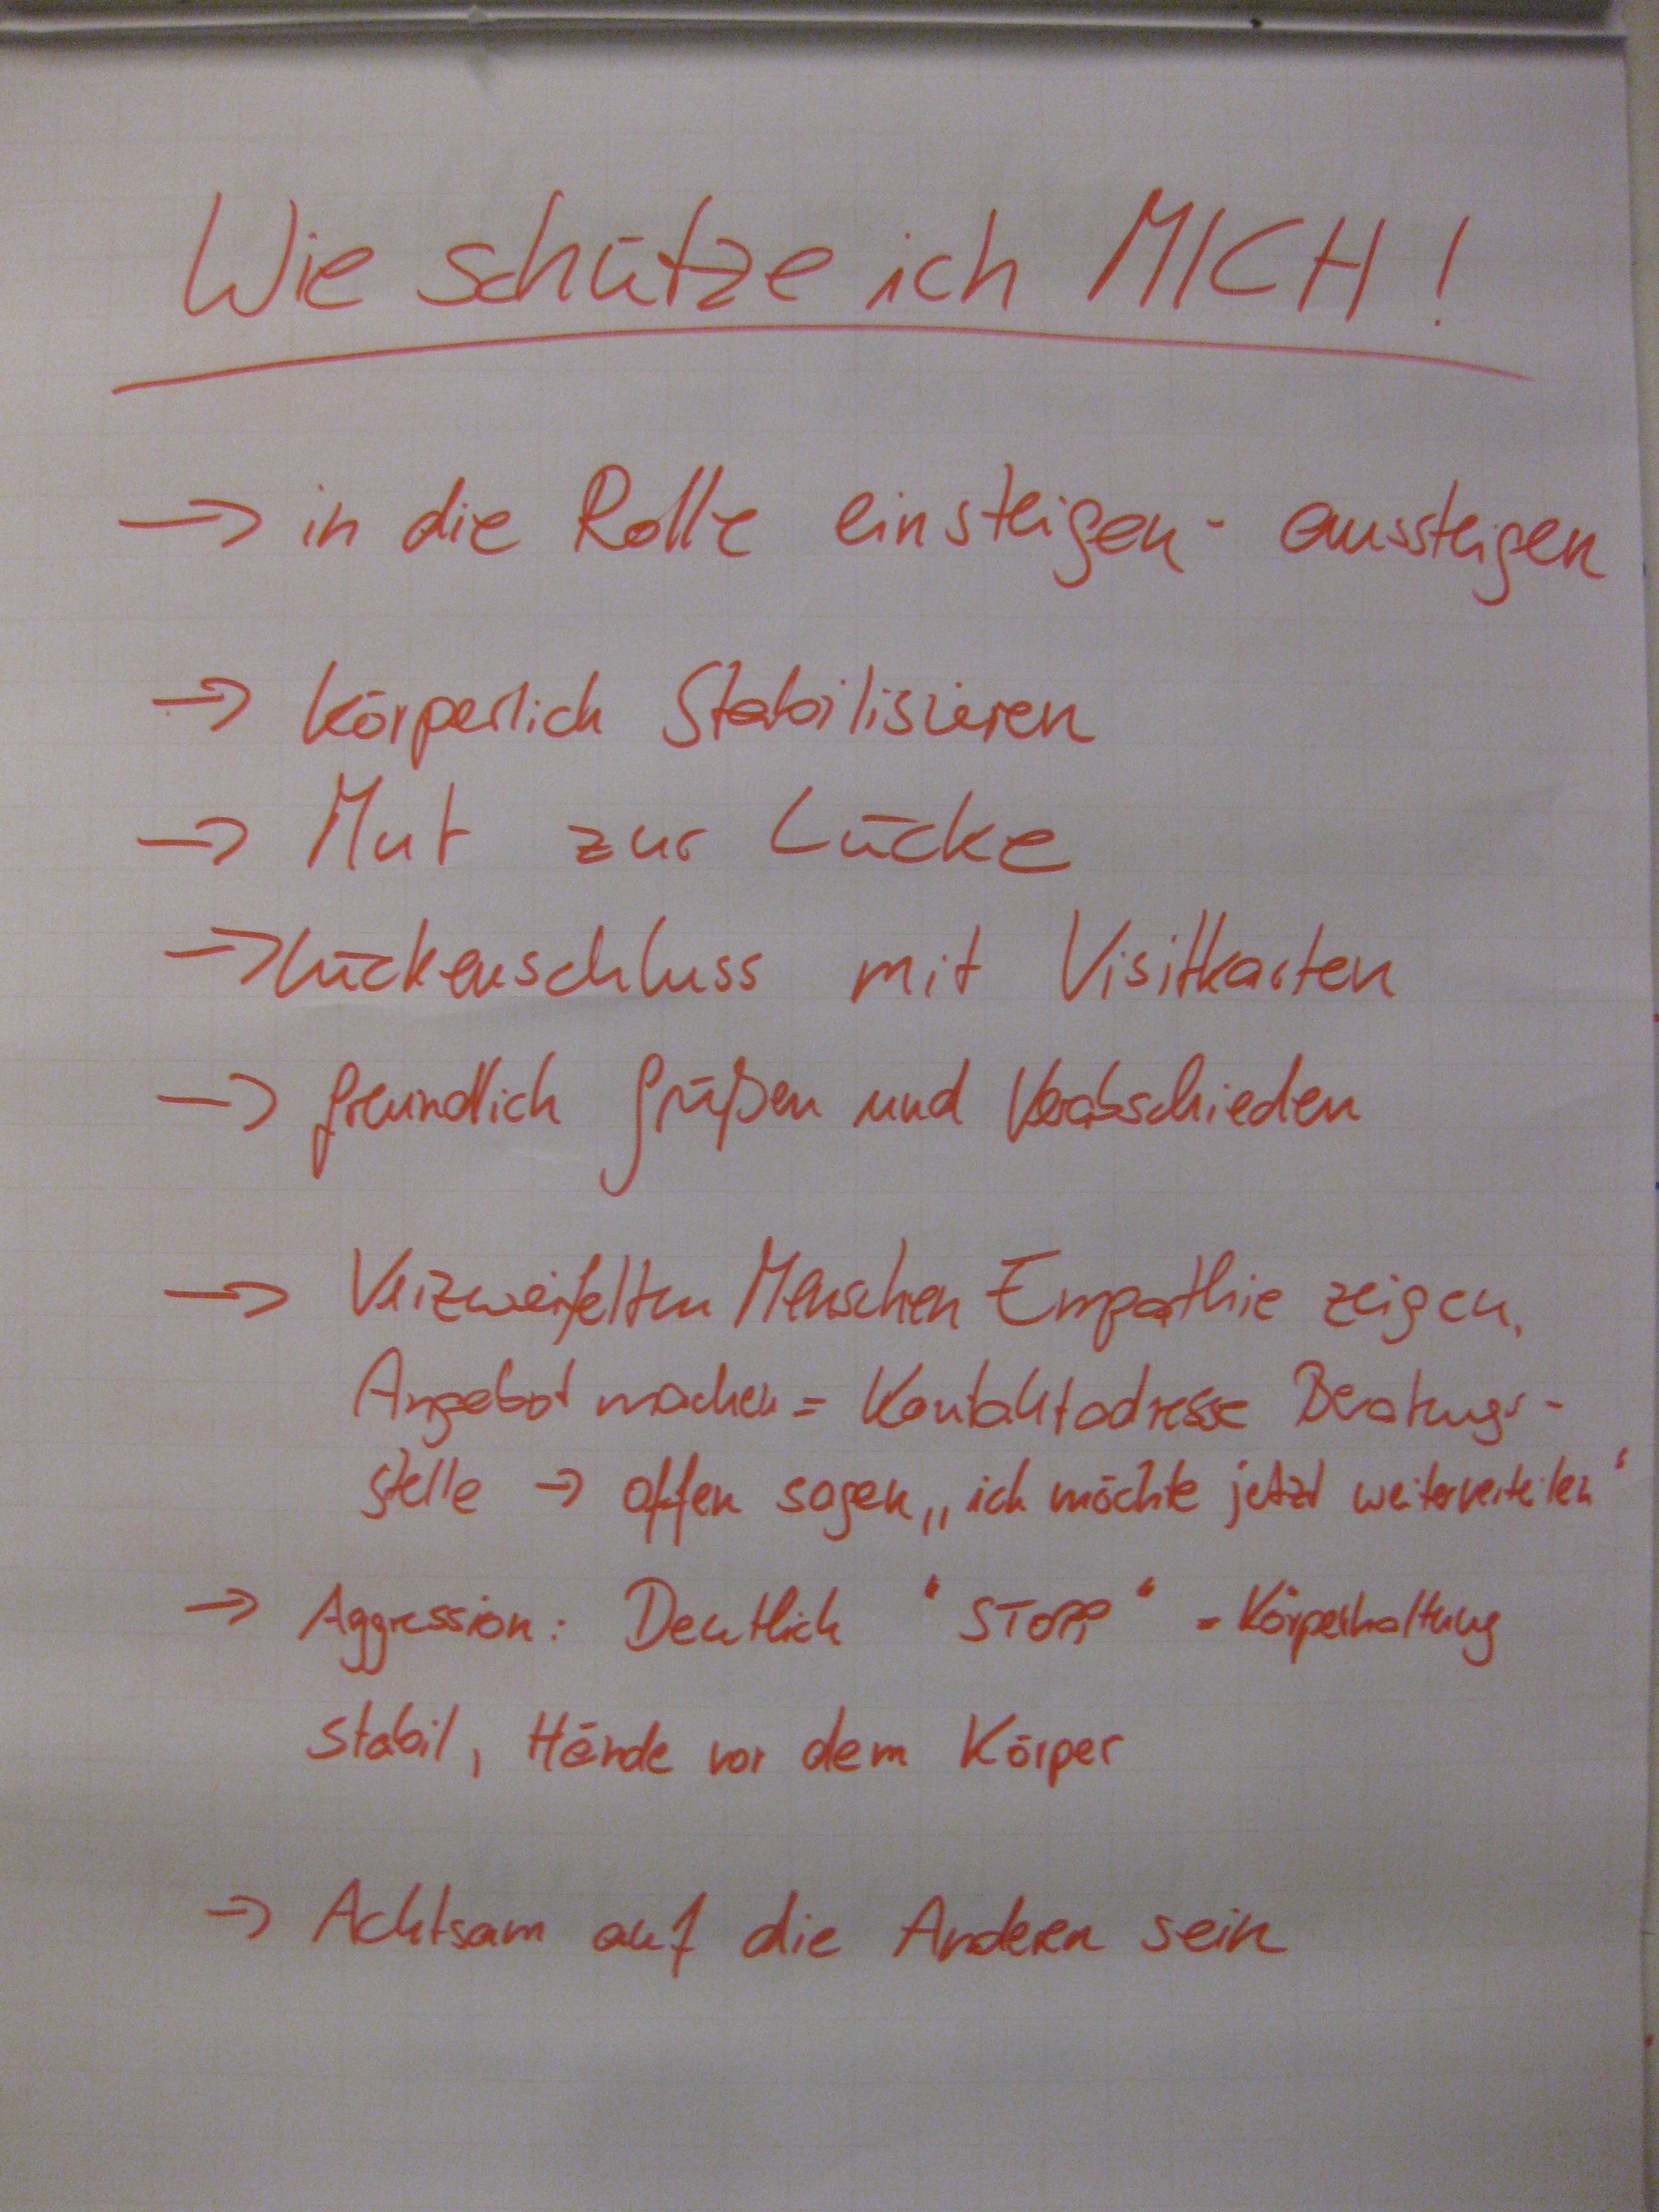 Wie schütze ich MICH!
→ in die Rolle einsteigen - aussteigen
→ körperlich Stabilisieren
→ Mut zur Lücke
→ Lückenschluss mit Visitkarten
→ freundlich grüßen und Verabschieden
→ Verzweifelten Menschen Empathie zeigen,
Angebot machen = Kontaktadresse Beratungs-
stelle → offen sagen „ich möchte jetzt weiterverteilen“
→ Aggression: Deutlich "STOPP" - Körperhaltung
stabil, Hände vor dem Körper
→ Achtsam auf die Anderen sein